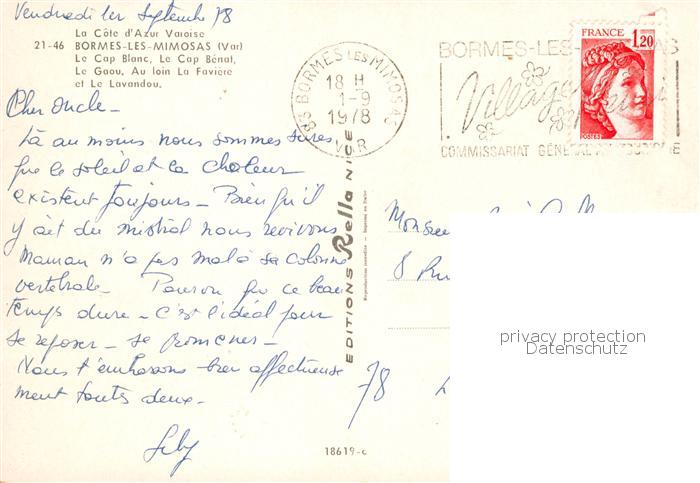 Vendredi 1er Septembre 78
La Côte d'Azur Varoise
21-46 BORMES-LES-MIMOSAS (Var)
Le Cap Blanc, Le Cap Bénat,
Le Gaou, Au loin La Favière
et Le Lavandou.
83 BORMES LES MIMOSAS
18 H
1-9
1978
VAR
BORMES-LES- AS
Village
COMMISSARIAT GÉNÉRAL AU TOURISME
FRANCE
1,20
POSTES
Cher oncle -
Là au moins nous sommes sûres
que le soleil et la chaleur
existent toujours - Bien qu'il
y ait du mistral nous revivons
Maman n'a pas mal à sa colonne
vertébrale - Pourvu que ce beau
temps dure - c'est l'idéal pour
se reposer - se promener -
Nous t'embrassons bien affectueuse
ment toutes deux -
EDITIONS Rella NICE
Reproduction interdite - Imprimé en Italie
Monsieur
8 Rue
78
18619-c
privacy protection
Datenschutz